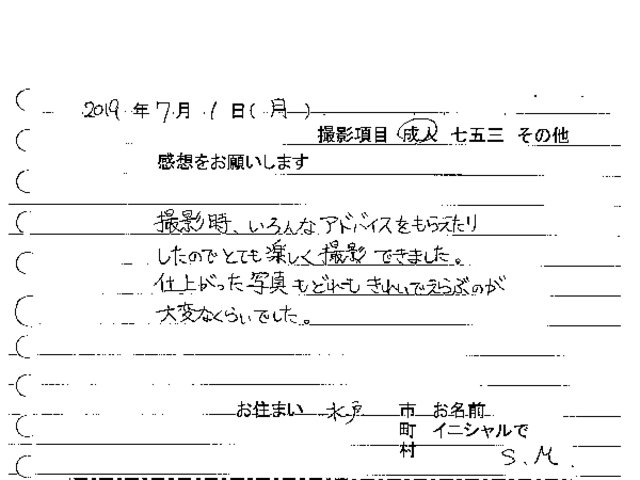 2019 年 7 月 1 日(月)
撮影項目 成人 七五三 その他
感想をお願いします
撮影時、いろんなアドバイスをもらえたり
したのでとても楽しく撮影できました。
仕上がった写真もどれもきれいでえらぶのが
大変なくらいでした。
お住まい 水戸 市 お名前
町 イニシャルで
村 S.M.